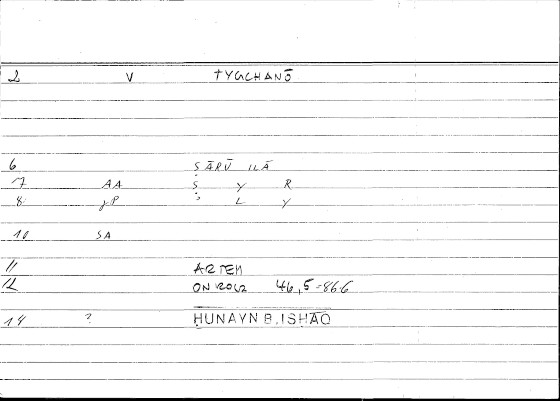 2 V TYGCHANŌ
6 ṢĀRŪ ILĀ
7 AA Ṣ Y R
8 gP ʾ L Y
10 SA
11 ARTEM
12 ON 46,5-866
14 ? ḤUNAYN B. ISḤĀQ